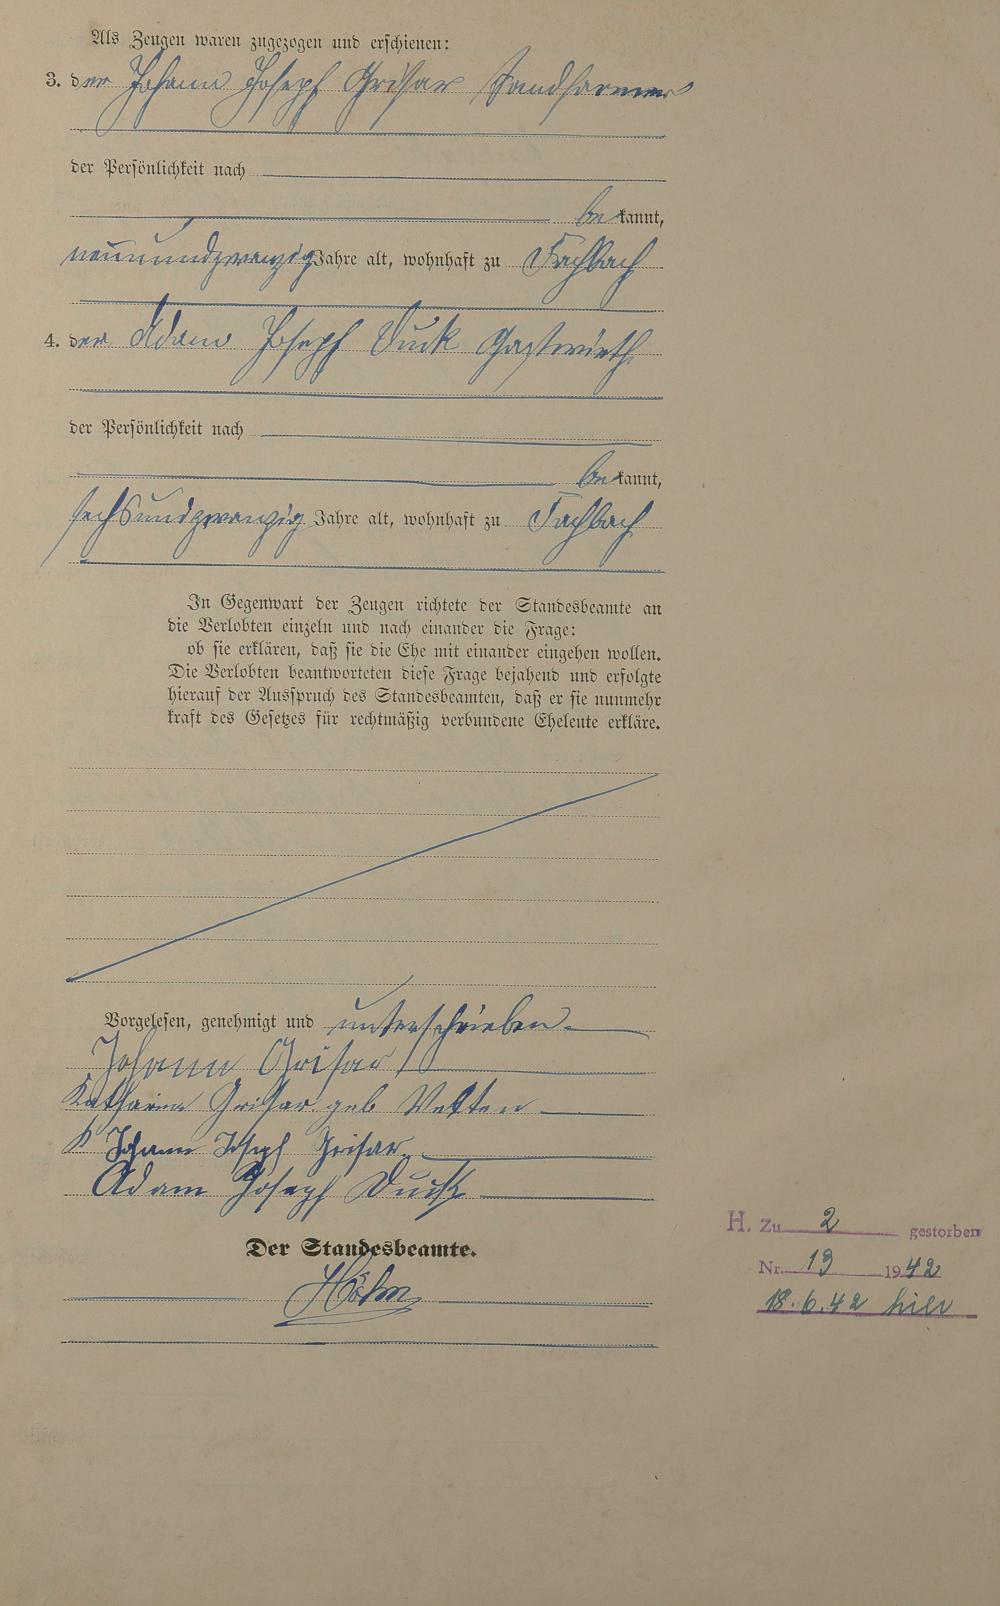 Als Zeugen waren zugezogen und erschienen:
3. der Johann Joseph Grisar Sandformer
der Persönlichkeit nach
bekannt,
neunundzwanzig Jahre alt, wohnhaft zu Fachbach
4. der Adam Joseph Duck Gastwirth
der Persönlichkeit nach
bekannt,
sechsundzwanzig Jahre alt, wohnhaft zu Fachbach
In Gegenwart der Zeugen richtete der Standesbeamte an
die Verlobten einzeln und nach einander die Frage:
ob sie erklären, daß sie die Ehe mit einander eingehen wollen.
Die Verlobten beantworteten diese Frage bejahend und erfolgte
hierauf der Ausspruch des Standesbeamten, daß er sie nunmehr
kraft des Gesetzes für rechtmäßig verbundene Eheleute erkläre.
Vorgelesen, genehmigt und unterschrieben.
Johann Grisar
Katharina Grisar geb
Johann Joseph Grisar
Adam Joseph Duck
Der Standesbeamte.
H. Zu 2 gestorben
Nr. 19 1942
18.6.42 hier